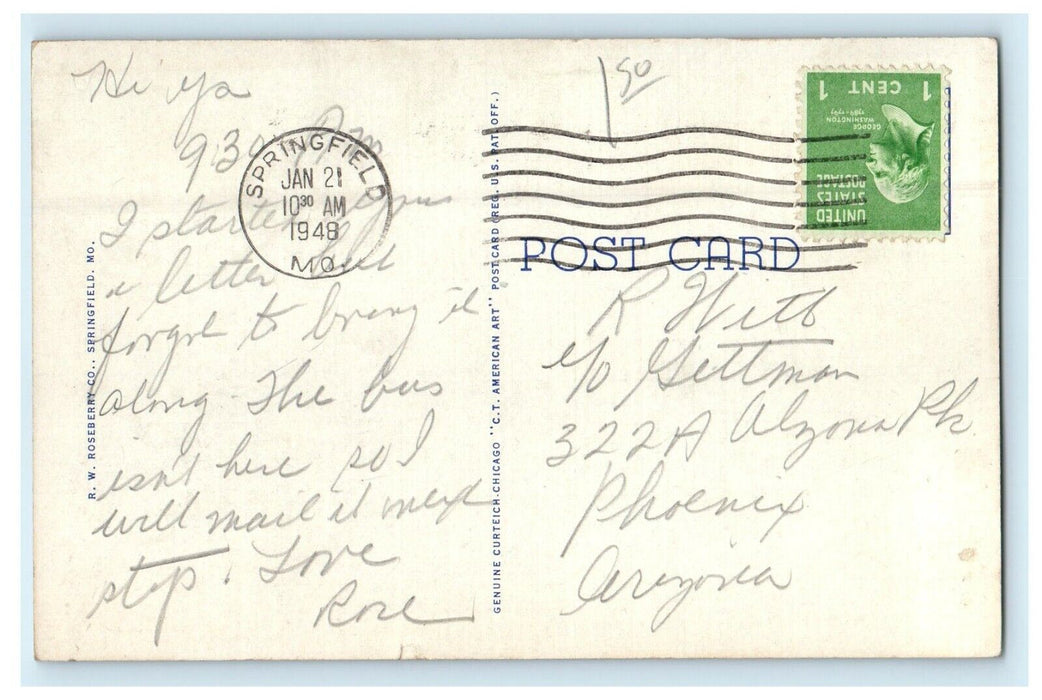 Hi ya
930 Pm
I started
a letter but
forgot to bring it
along. The bus
isn't here so I
will mail it next
stop. Love
Rose
R. W. ROSEBERRY CO., SPRINGFIELD, MO.
SPRINGFIELD
JAN 21
10³⁰ AM
1948
MO.
GENUINE CURTEICH-CHICAGO "C.T. AMERICAN ART" POST CARD (REG. U.S. PAT. OFF.)
1 50
1 CENT 1
GEORGE WASHINGTON
1789-1797
UNITED
STATES
POSTAGE
POST CARD
R Witt
c/o Gettman
322A Pk
Phoenix
Arizona